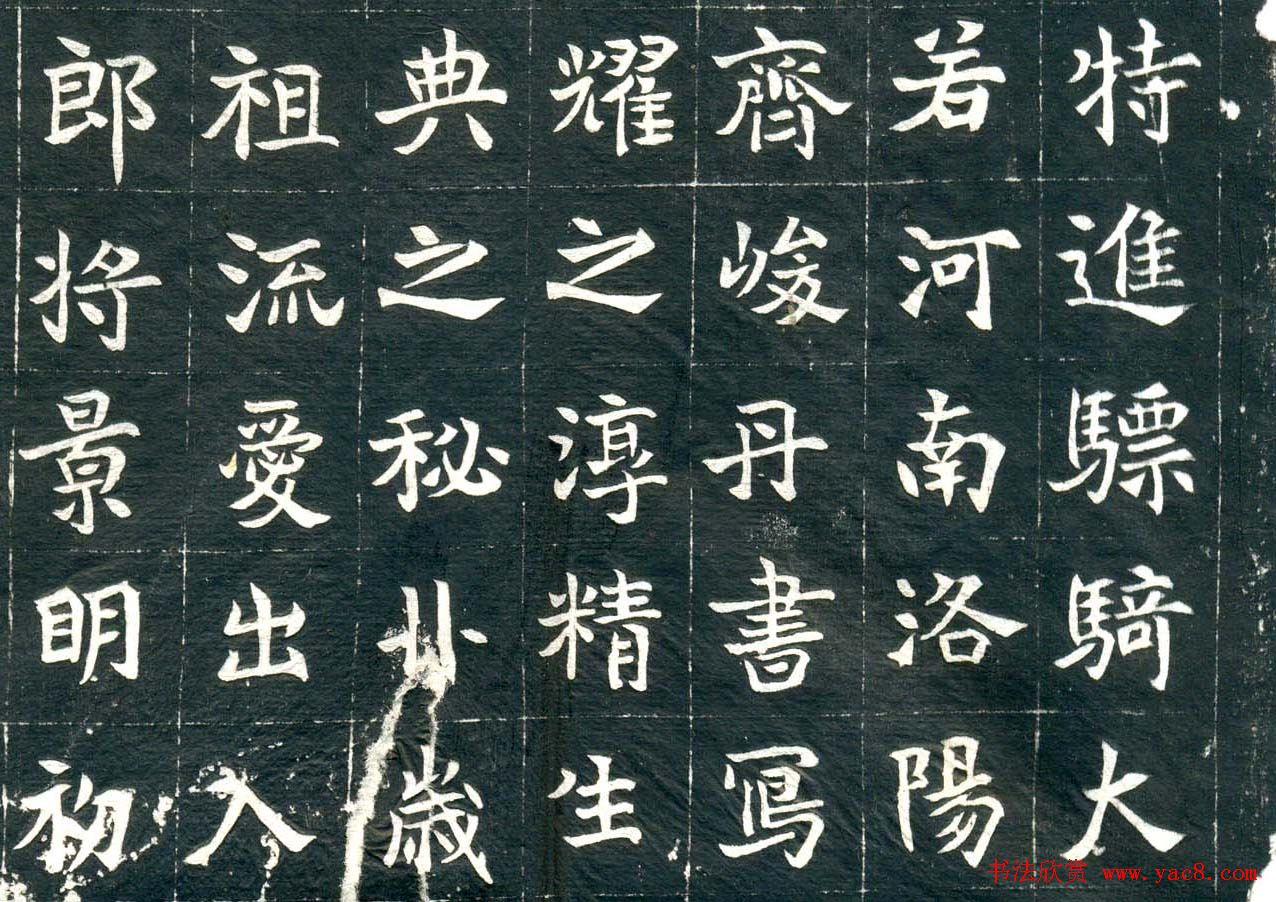 特進驃騎大
若河南洛陽
齊峻丹書冩
耀之淳精生
典之秘丱歲
祖流愛出入
郎將景明初
书法欣赏 www.yac8.com